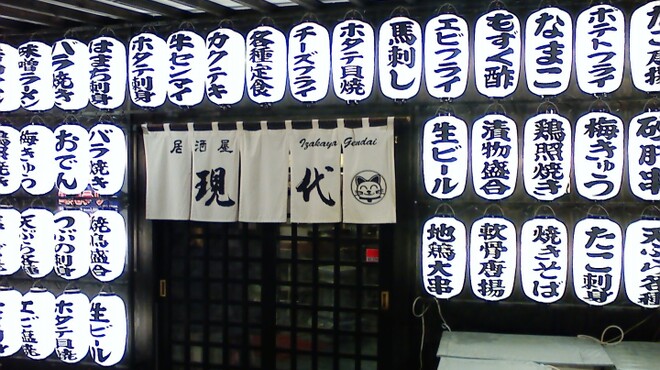 味噌ラーメン
バラ焼き
はまち刺身
ホタテ刺身
牛センマイ
カクテキ
各種定食
チーズフライ
ホタテ貝焼
馬刺し
エビフライ
もずく酢
なまこ
ポテトフライ
たこ唐揚
梅きゅう
おでん
バラ焼き
居酒屋
Izakaya Gendai
現代
生ビール
漬物盛合
鶏照焼き
梅きゅう
砂肝串
つぶ刺身
焼鳥盛合
地鶏大串
軟骨唐揚
焼きそば
たこ刺身
天ぷら各種
ホタテ貝焼
生ビール